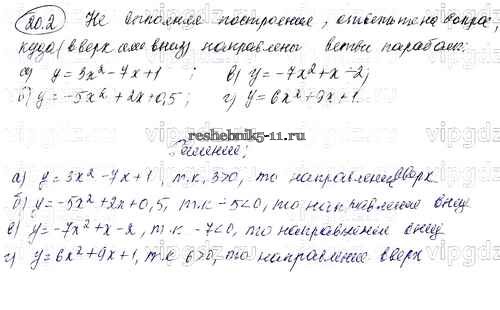 20.2 Не выполняя построения, ответьте на вопрос,
куда (вверх или вниз) направлены ветви параболы:
а) y = 3x² - 7x + 1 ; в) y = -7x² + x - 2;
б) y = -5x² + 2x + 0,5 ; г) y = 6x² + 9x + 1.
reshebnik5-11.ru
Решение:
а) y = 3x² - 7x + 1, т.к. 3>0, то направление вверх
б) y = -5x² + 2x + 0,5, т.к. -5<0, то направление вниз
в) y = -7x² + x - 2, т.к. -7<0, то направление вниз
г) y = 6x² + 9x + 1, т.к. 6>0, то направление вверх
vipgdz